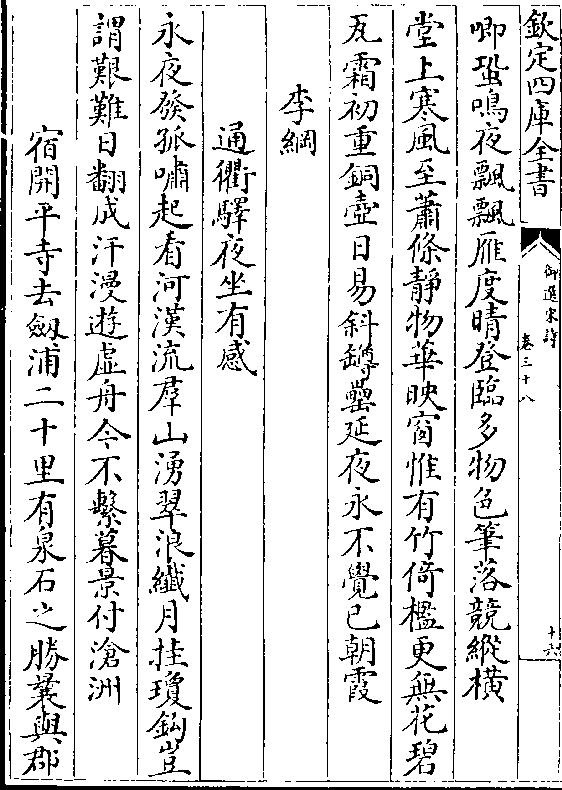 欽定四庫全書
御選宋詩
卷三十八
十六
唧蛩鳴夜飄飄雁度晴登臨多物色筆落競縱橫
堂上寒風至蕭條靜物華映窗惟有竹倚檻更無花碧
瓦霜初重銅壺日易斜罇罍延夜永不覺已朝霞
李綱
通衢驛夜坐有感
永夜發孤嘯起看河漢流羣山湧翠浪纖月挂瓊鈎豈
謂艱難日翻成汗漫遊虛舟今不繫暮景付滄洲
宿開平寺去劔浦二十里有泉石之勝曩與郡